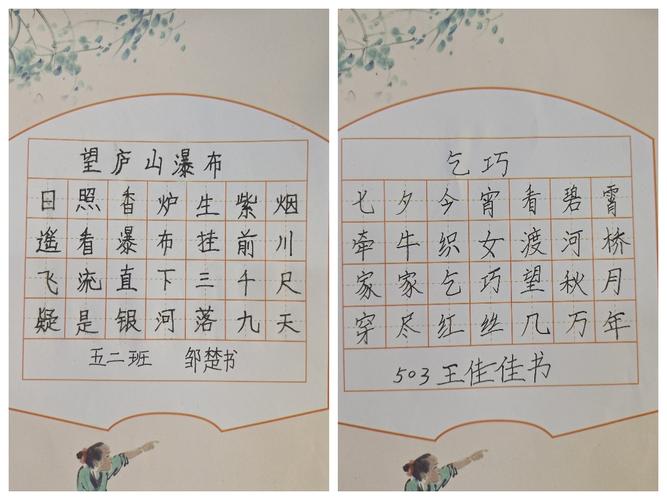 望庐山瀑布
日照香炉生紫烟
遥看瀑布挂前川
飞流直下三千尺
疑是银河落九天
五二班 邹楚书
乞巧
七夕今宵看碧霄
牵牛织女渡河桥
家家乞巧望秋月
穿尽红丝几万年
503王佳佳书